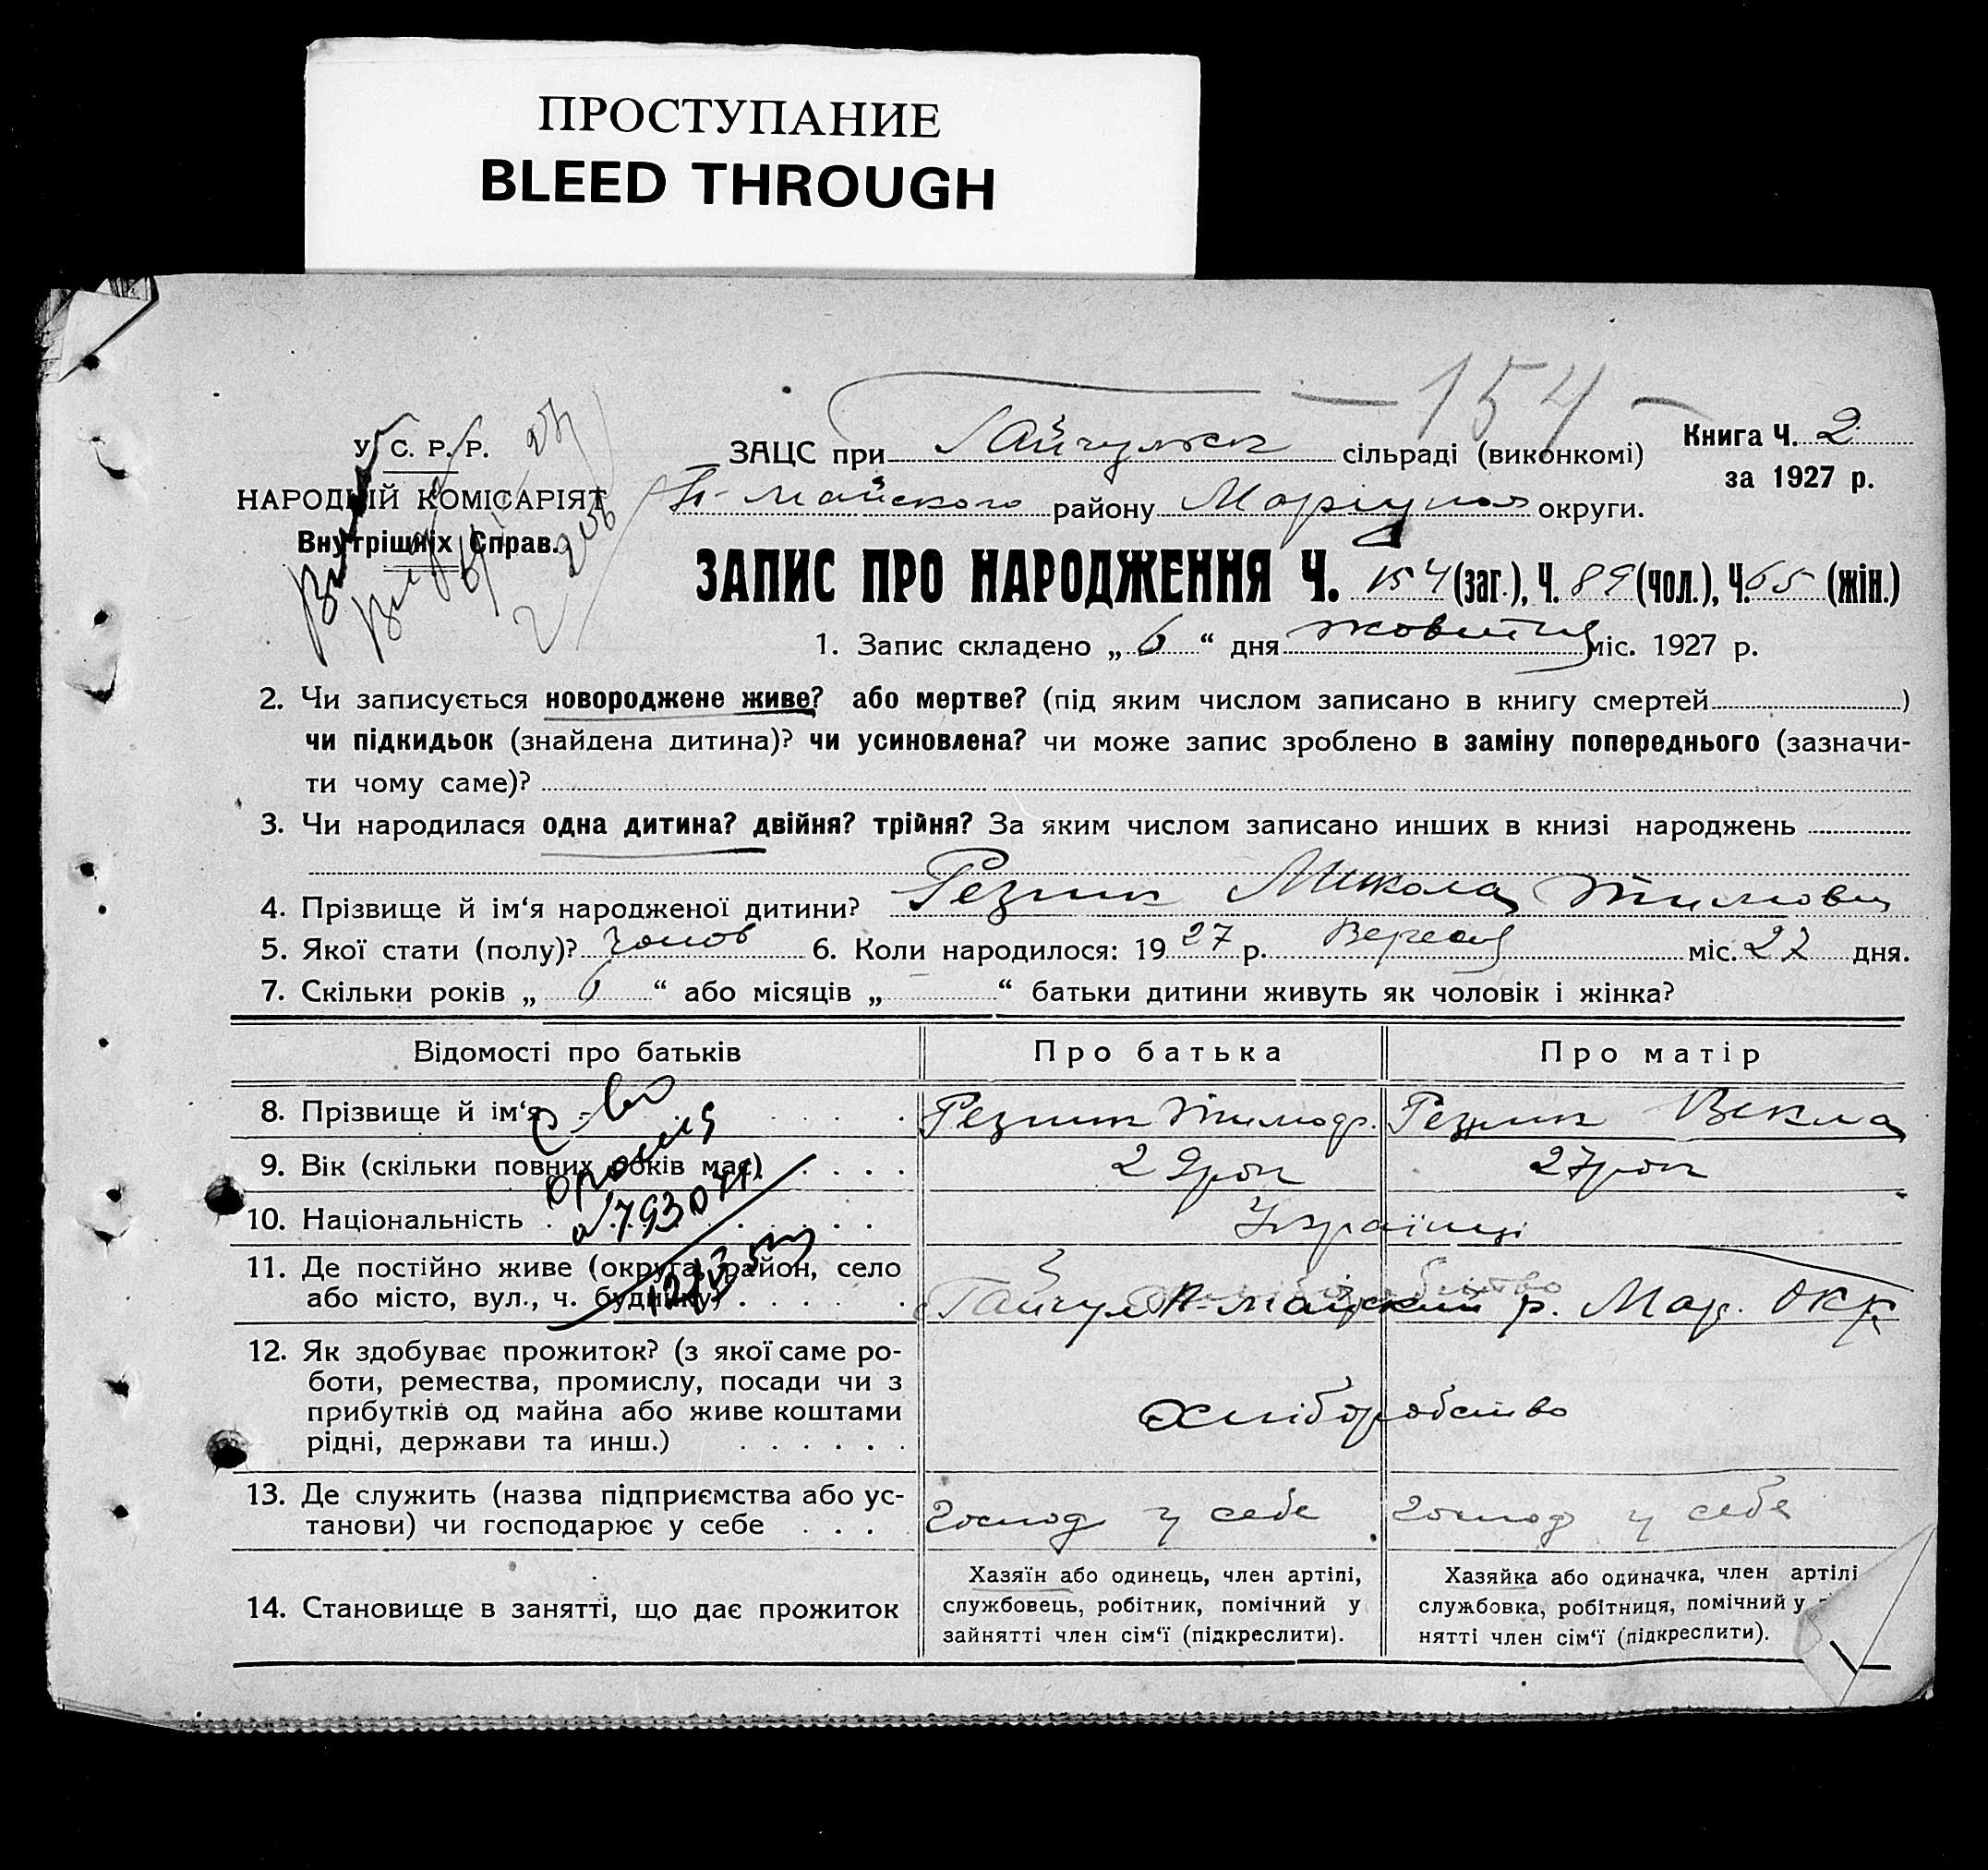 ПРОСТУПАНИЕ
BLEED THROUGH
— 154 —
У. С. Р. Р.
НАРОДНІЙ КОМІСАРІЯТ
Внутрішніх Справ.
ЗАЦС при Гайчульск сільраді (виконкомі)
Книга Ч. 2
за 1927 р.
П-майского району Маріупол округи.
ЗАПИС ПРО НАРОДЖЕННЯ Ч. 154 (заг.), Ч. 89 (чол.), Ч. 65 (жін.)
1. Запис складено „ 6 “ дня жовтня міс. 1927 р.
2. Чи записується новороджене живе? або мертве? (під яким числом записано в книгу смертей )
чи підкидьок (знайдена дитина)? чи усиновлена? чи може запис зроблено в заміну попереднього (зазначи-
ти чому саме)?
3. Чи народилася одна дитина? двійня? трійня? За яким числом записано инших в книзі народжень
4. Прізвище й ім‘я народженої дитини? Резник Микола Тимов
5. Якої стати (полу)? чолов 6. Коли народилося: 19 27 р. Вересня міс. 27 дня.
7. Скільки років „ 6 “ або місяців „ “ батьки дитини живуть як чоловік і жінка?
Відомості про батьків Про батька Про матір
8. Прізвище й ім‘я Резник Тимоф. Резник Векла
9. Вік (скільки повних років має) 29 рок 27 рок
10. Національність Українці
11. Де постійно живе (округа, район, село
або місто, вул., ч. будинку) Гайчул П-майский р. Мар. Окр.
12. Як здобуває прожиток? (з якої саме ро-
боти, ремества, промислу, посади чи з
прибутків од майна або живе коштами
рідні, держави та инш.) Хліборобство
13. Де служить (назва підприємства або ус-
танови) чи господарює у себе Господ у себе Господ у себе
14. Становище в занятті, що дає прожиток
Хазяїн або одинець, член артілі,
службовець, робітник, помічний у
зайнятті член сім‘ї (підкреслити).
Хазяйка або одиначка, член артілі
службовка, робітниця, помічний у
нятті член сім‘ї (підкреслити).